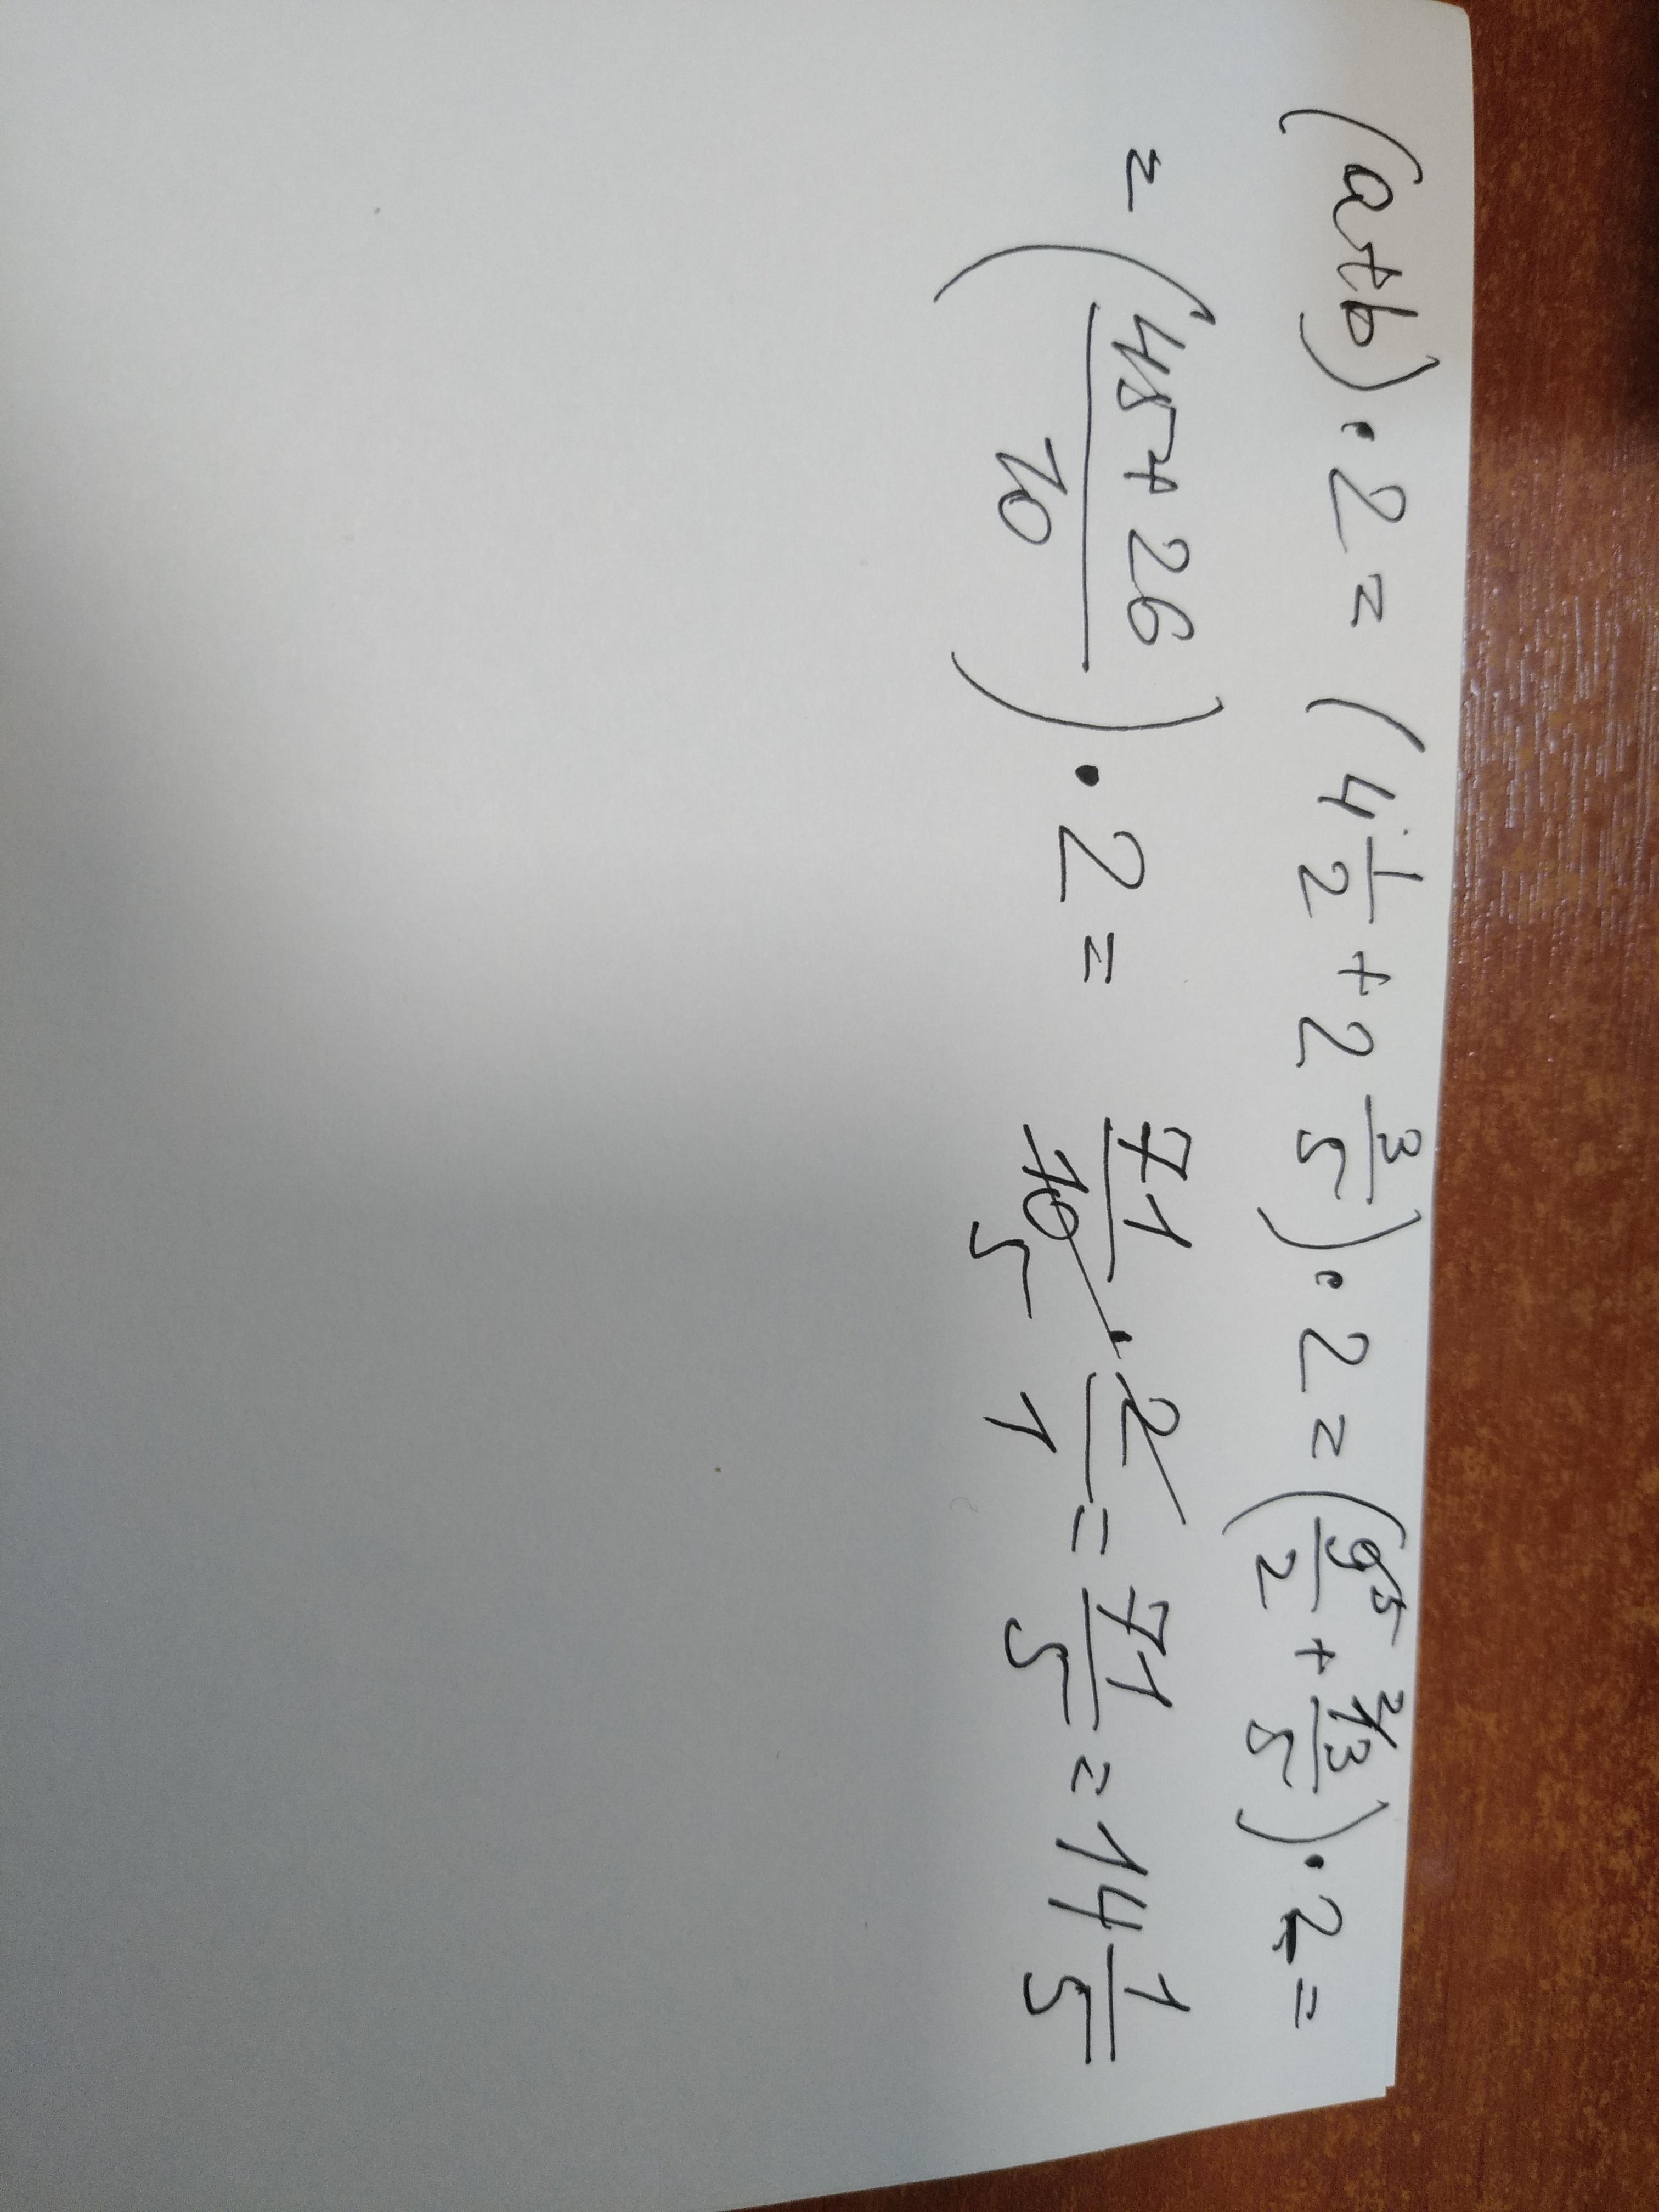 (a+b)·2 = (4 1/2 + 2 3/5)·2 = (9⁵/2 + ²⁄13/5)·2 =
= (45+26/10)·2 = 71/10 5 · 2/1 = 71/5 = 14 1/5